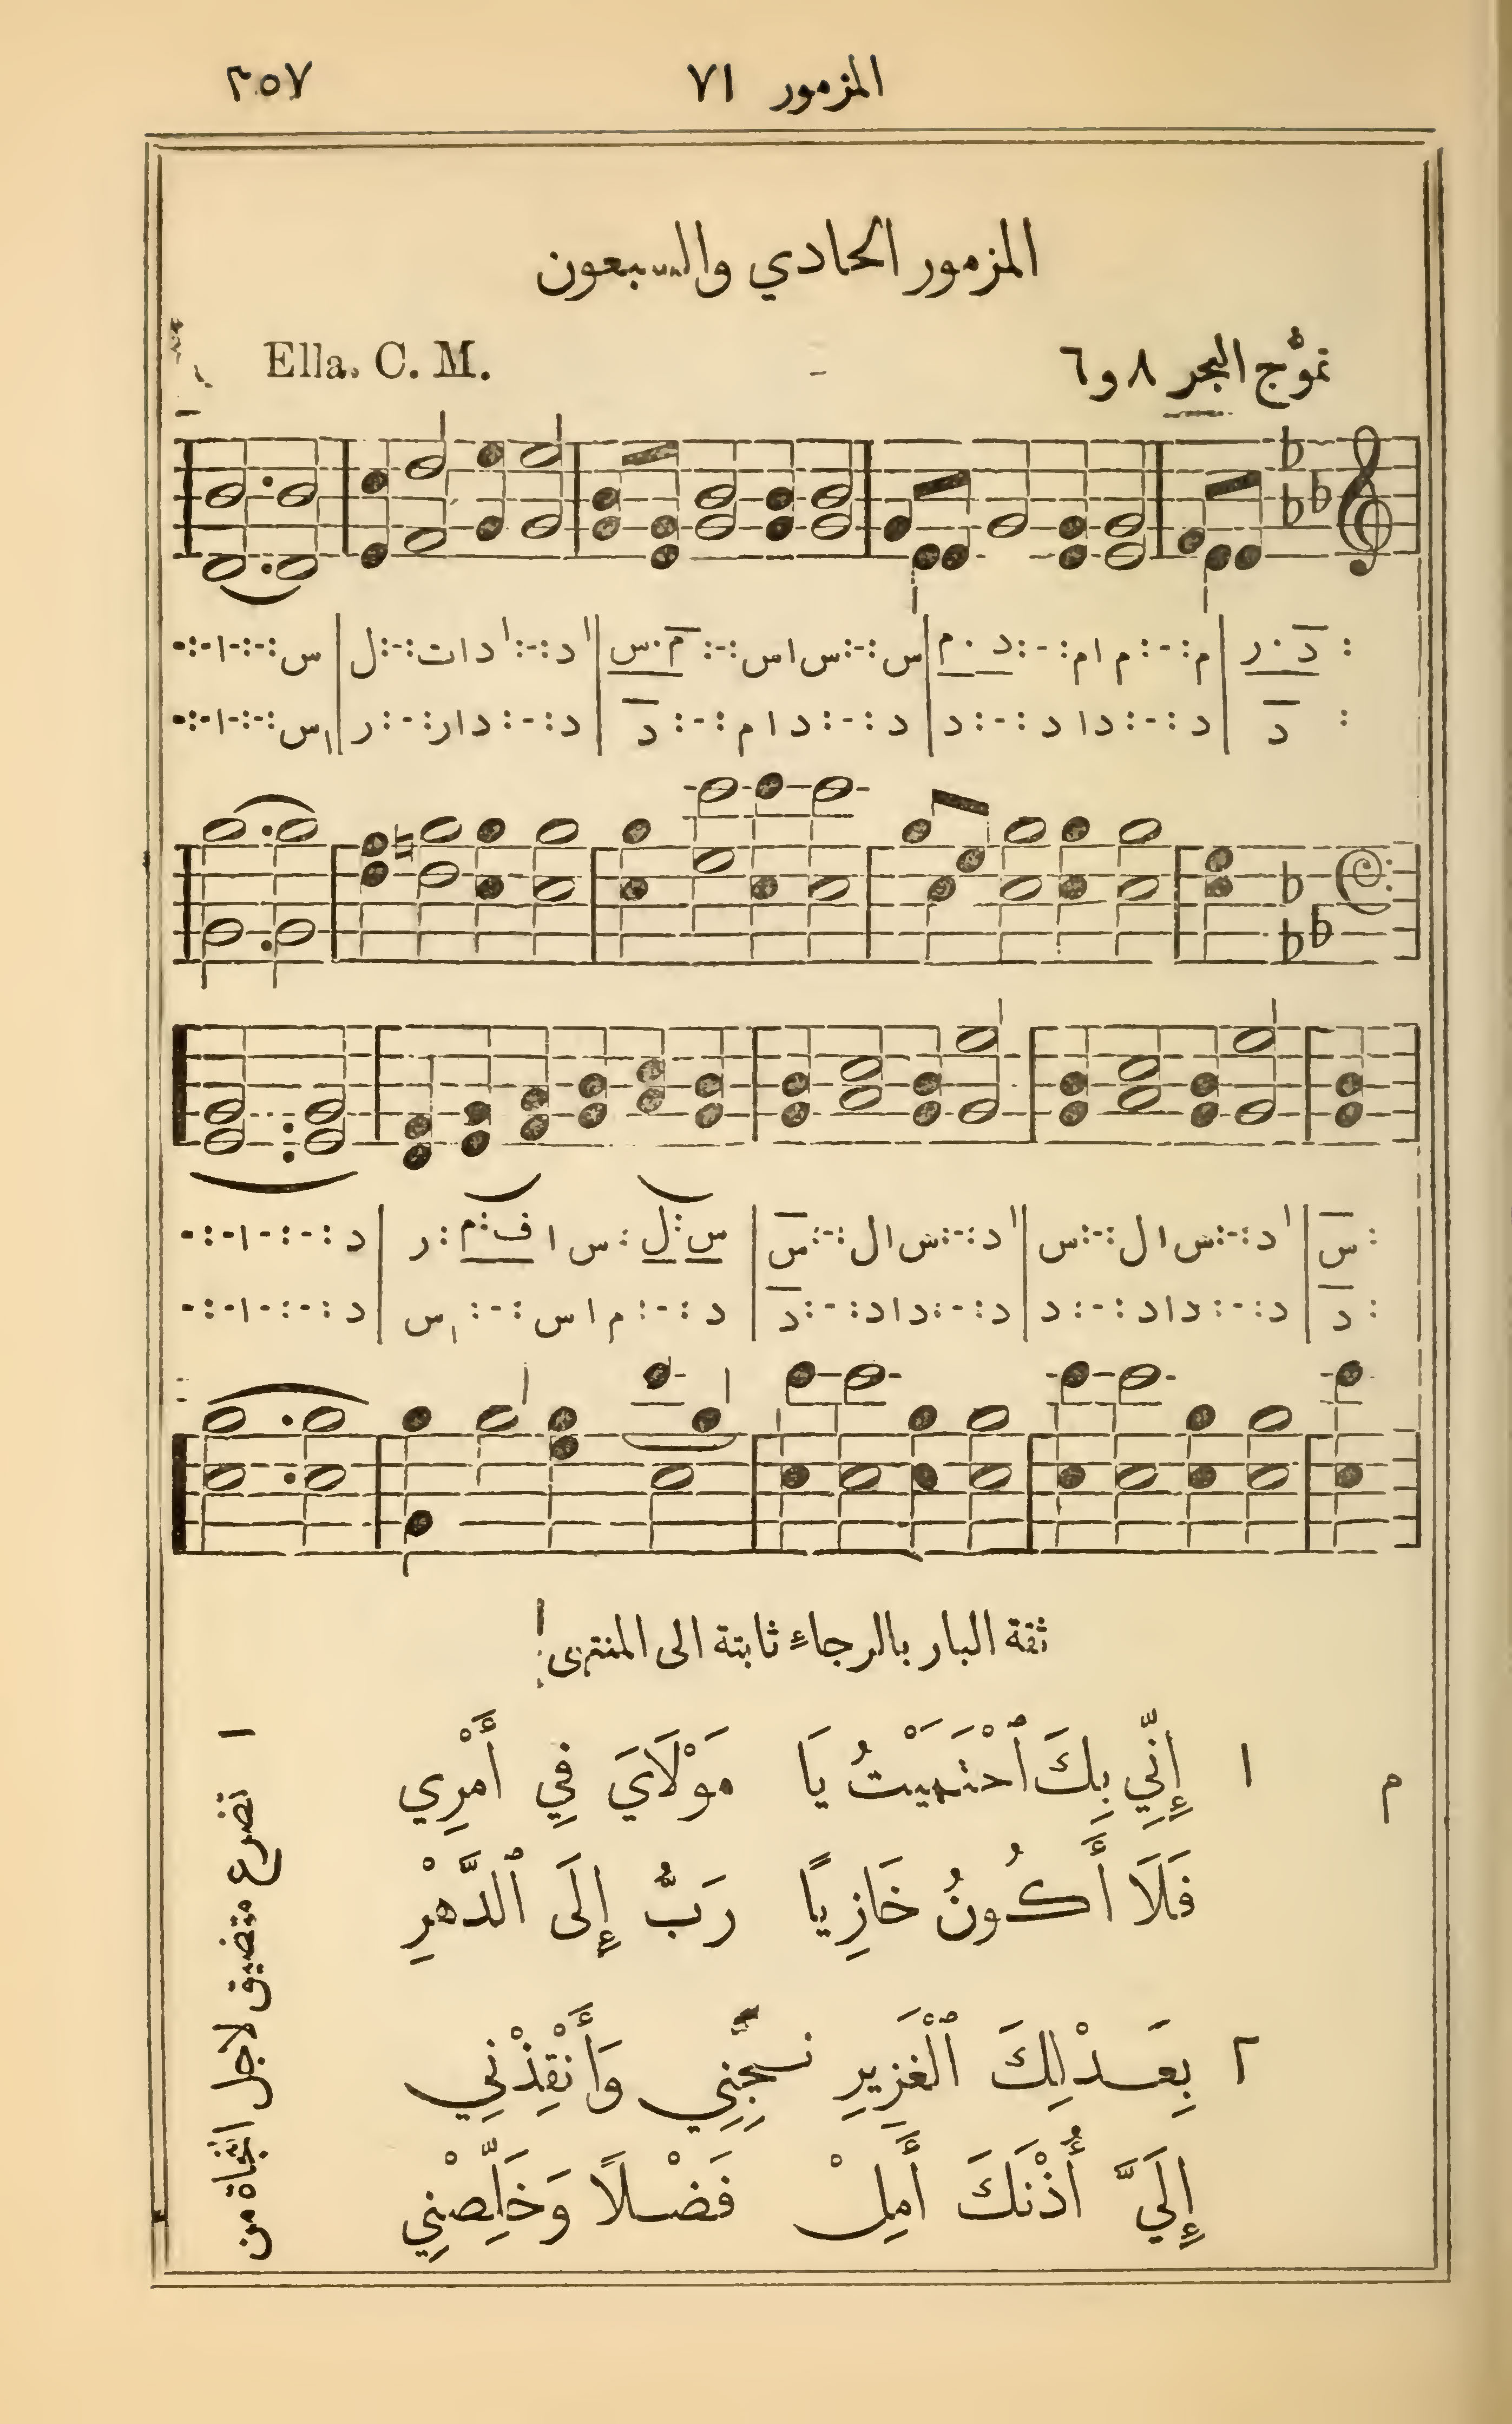 المزمور ٧١
٢٥٧
المزمور الحادي والسبعون
تموُّج البحر ٨ و٦
Ella. C. M.
: د . ر | م :-: م ا م :-: د . م | س :-: س ا س :-: م . س | د :-: د ا ت :-: ل | س :-:-ا-:-:-
: د | د :-: د ا د :-: د | د :-: د ا م :-: د | د :-: د ا ر :-: ر | س :-:-ا-:-:-
: س | د :-: س ا ل :-: س | د :-: س ا ل :-: س | س : ل : س ا ف : م : ر | د :-:-ا-:-:-
: د | د :-: د ا د :-: د | د :-: د ا د :-: د | د :-: م ا س :-: س | د :-:-ا-:-:-
ثقة البار بالرجاءِ ثابتة الى المنتهى
م
١ إِنِّي بِكَ ٱحْتَمَيْتُ يَا مَوْلَايَ فِي أَمْرِي
فَلَا أَكُونُ خَازِيًا رَبُّ إِلَى ٱلدَّهْرِ
٢ بِعَدْلِكَ ٱلْغَزِيرِ نَجِّنِي وَأَنْقِذْنِي
إِلَيَّ أُذْنَكَ أَمِلْ فَضْلًا وَخَلِّصْنِي
١ تضرع متضيق لاجل النجاة من